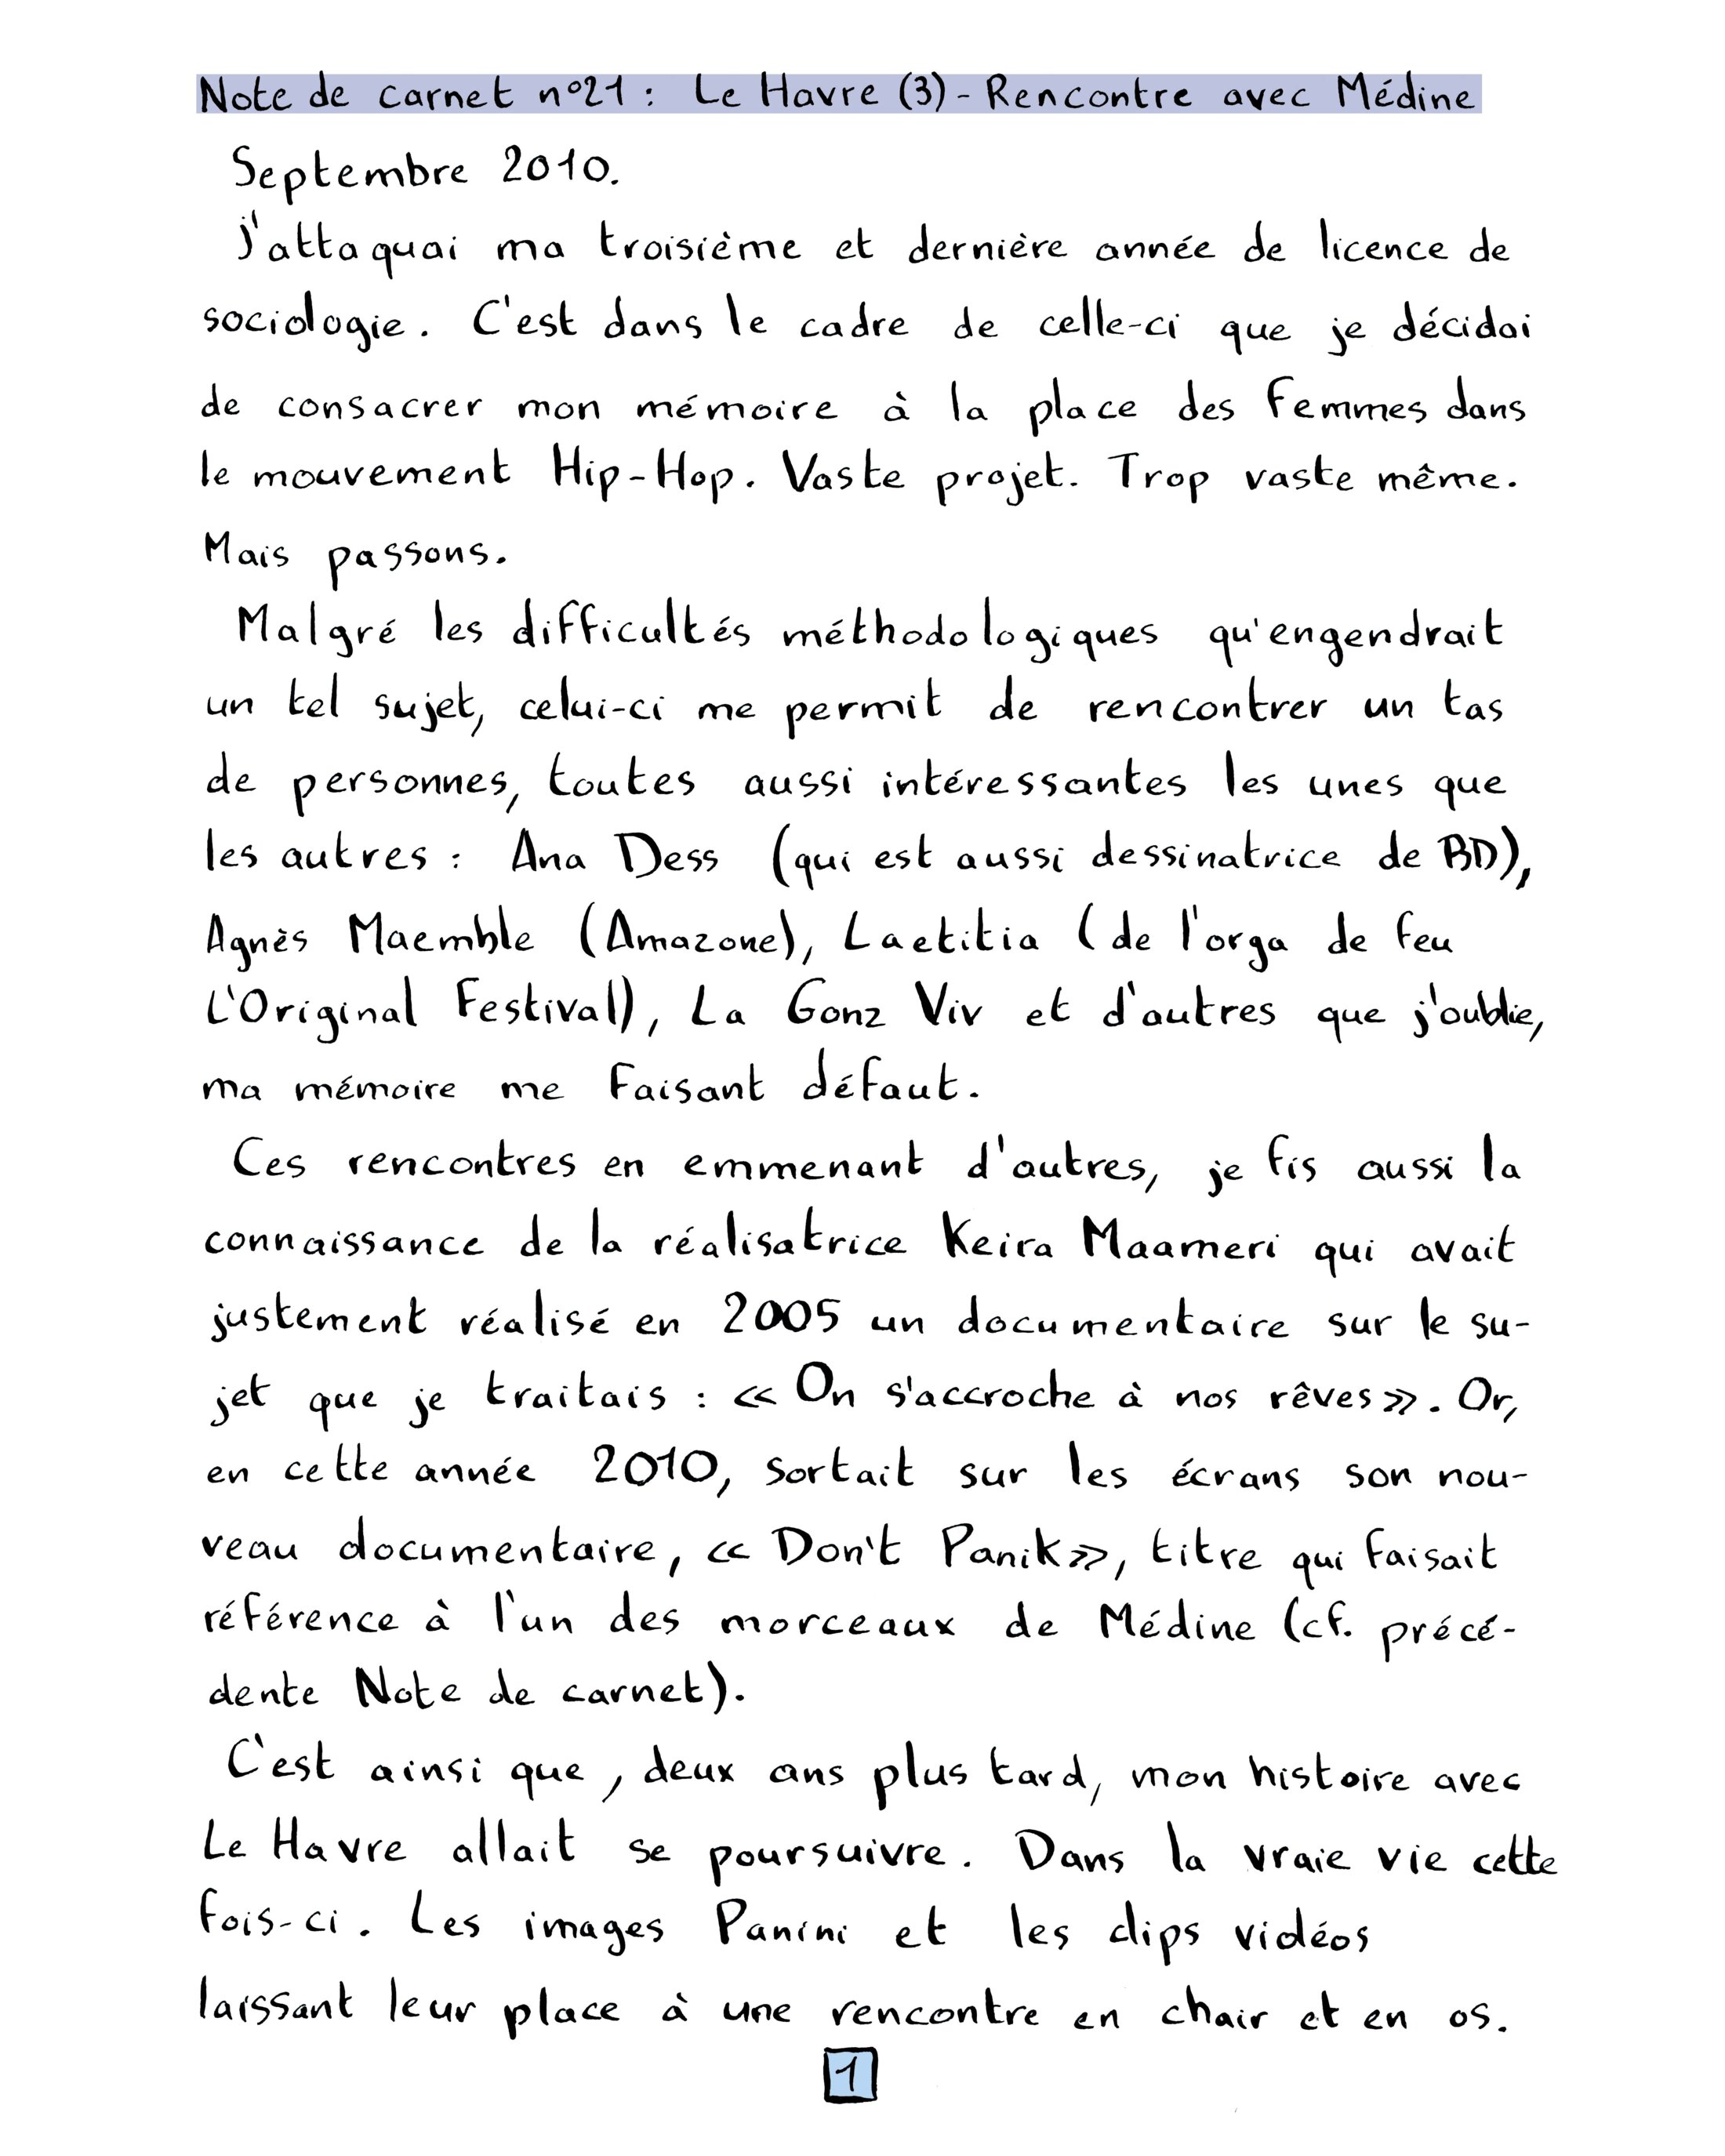 Note de carnet n°21 : Le Havre (3) - Rencontre avec Médine
Septembre 2010.
J'attaquai ma troisième et dernière année de licence de
sociologie. C'est dans le cadre de celle-ci que je décidai
de consacrer mon mémoire à la place des femmes dans
le mouvement Hip-Hop. Vaste projet. Trop vaste même.
Mais passons.
Malgré les difficultés méthodologiques qu'engendrait
un tel sujet, celui-ci me permit de rencontrer un tas
de personnes, toutes aussi intéressantes les unes que
les autres : Ana Dess (qui est aussi dessinatrice de BD),
Agnès Maemble (Amazone), Laetitia (de l'orga de feu
L'Original Festival), La Gonz Viv et d'autres que j'oublie,
ma mémoire me faisant défaut.
Ces rencontres en emmenant d'autres, je fis aussi la
connaissance de la réalisatrice Keira Maameri qui avait
justement réalisé en 2005 un documentaire sur le su-
jet que je traitais : « On s'accroche à nos rêves ». Or,
en cette année 2010, sortait sur les écrans son nou-
veau documentaire, « Don't Panik », titre qui faisait
référence à l'un des morceaux de Médine (cf. précé-
dente Note de carnet).
C'est ainsi que, deux ans plus tard, mon histoire avec
Le Havre allait se poursuivre. Dans la vraie vie cette
fois-ci. Les images Panini et les clips vidéos
laissant leur place à une rencontre en chair et en os.
1